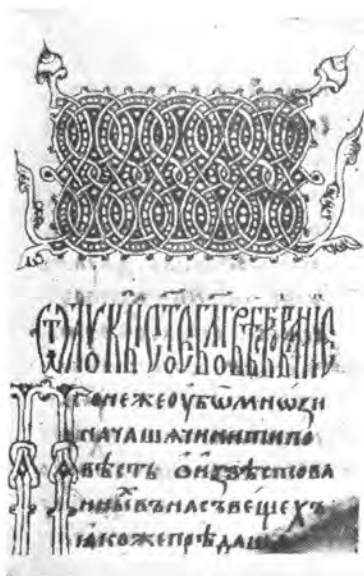 Ѿ лꙋкы ст҃ое бл҃говѣствованїе
Понеже оубѡ мнѡѕи
начашѧ чинити по
вѣсть ѡ извѣствова
нныⷯ въ насъ вещехъ
ꙗкоже прѣдаша